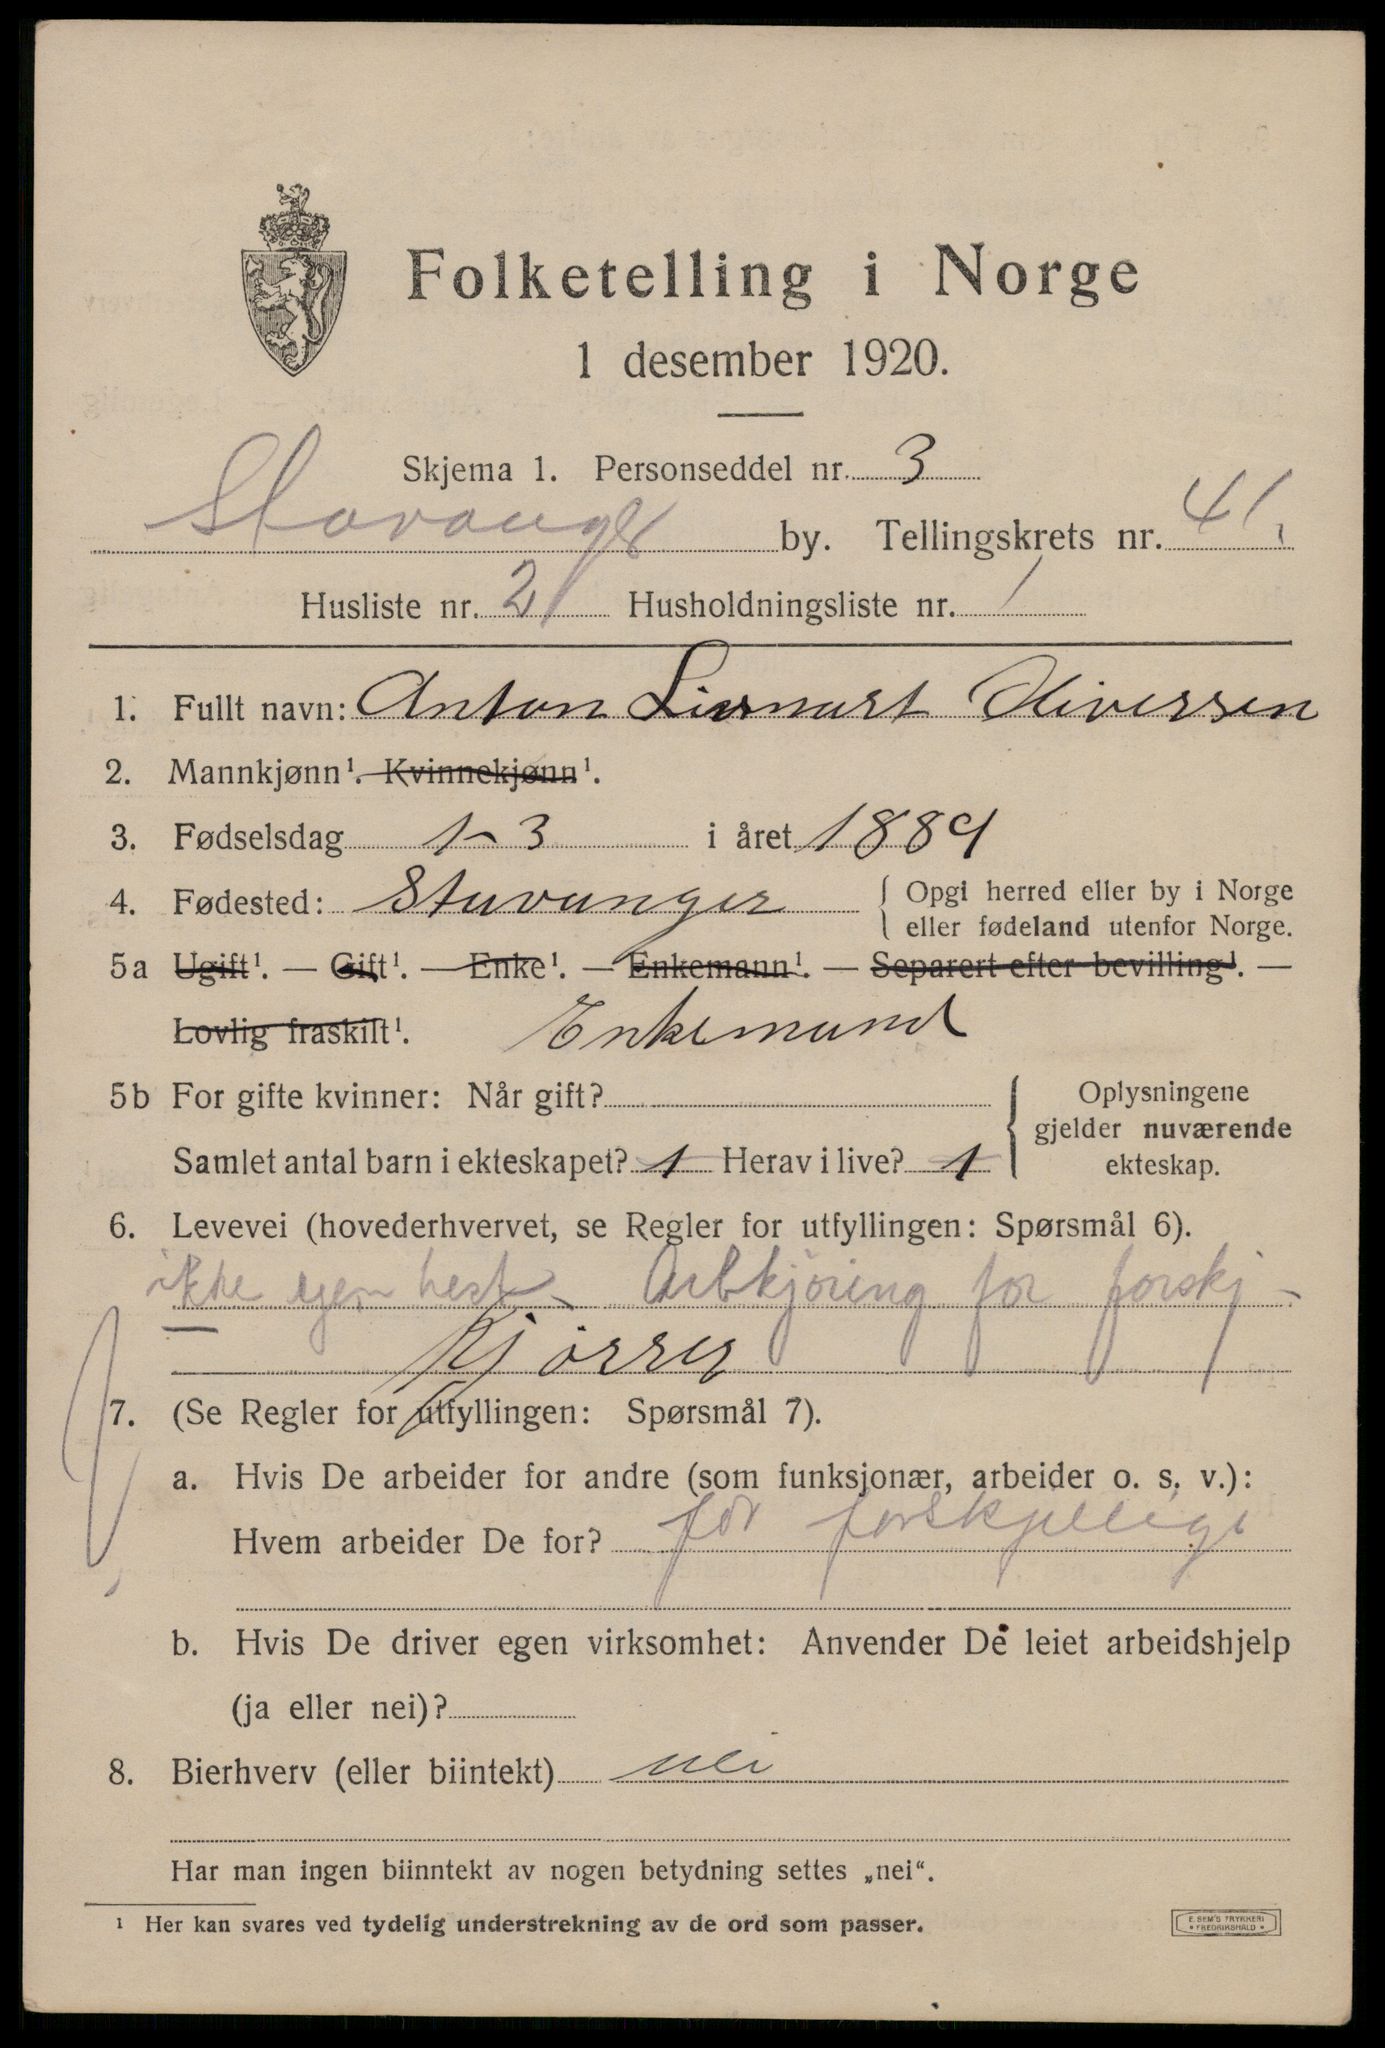 Folketelling i Norge
1 desember 1920.
Skjema 1. Personseddel nr. 3
Stavanger by. Tellingskrets nr. 41.
Husliste nr. 21 Husholdningsliste nr. 1
1. Fullt navn: Anton Oliversen
2. Mannkjønn¹. Kvinnekjønn¹.
3. Fødselsdag 1-3 i året 1889
4. Fødested: Stavanger { Opgi herred eller by i Norge
eller fødeland utenfor Norge.
5a Ugift¹. — Gift¹. — Enke¹. — Enkemann¹. — Separert efter bevilling¹. —
Lovlig fraskilt¹. Enkemand
5b For gifte kvinner: Når gift?
Samlet antal barn i ekteskapet? 1 Herav i live? 1
Oplysningene
gjelder nuværende
ekteskap.
6. Levevei (hovederhvervet, se Regler for utfyllingen: Spørsmål 6).
ikke egen hest - Arbkjöring for forskj -
Kjörrer
7. (Se Regler for utfyllingen: Spørsmål 7).
a. Hvis De arbeider for andre (som funksjonær, arbeider o. s. v.):
Hvem arbeider De for? for forskjellige
b. Hvis De driver egen virksomhet: Anvender De leiet arbeidshjelp
(ja eller nei)?
8. Bierhverv (eller biintekt) nei
Har man ingen biinntekt av nogen betydning settes „nei“.
¹ Her kan svares ved tydelig understrekning av de ord som passer.
E. SEM'S TRYKKERI
• FREDRIKSHALD •